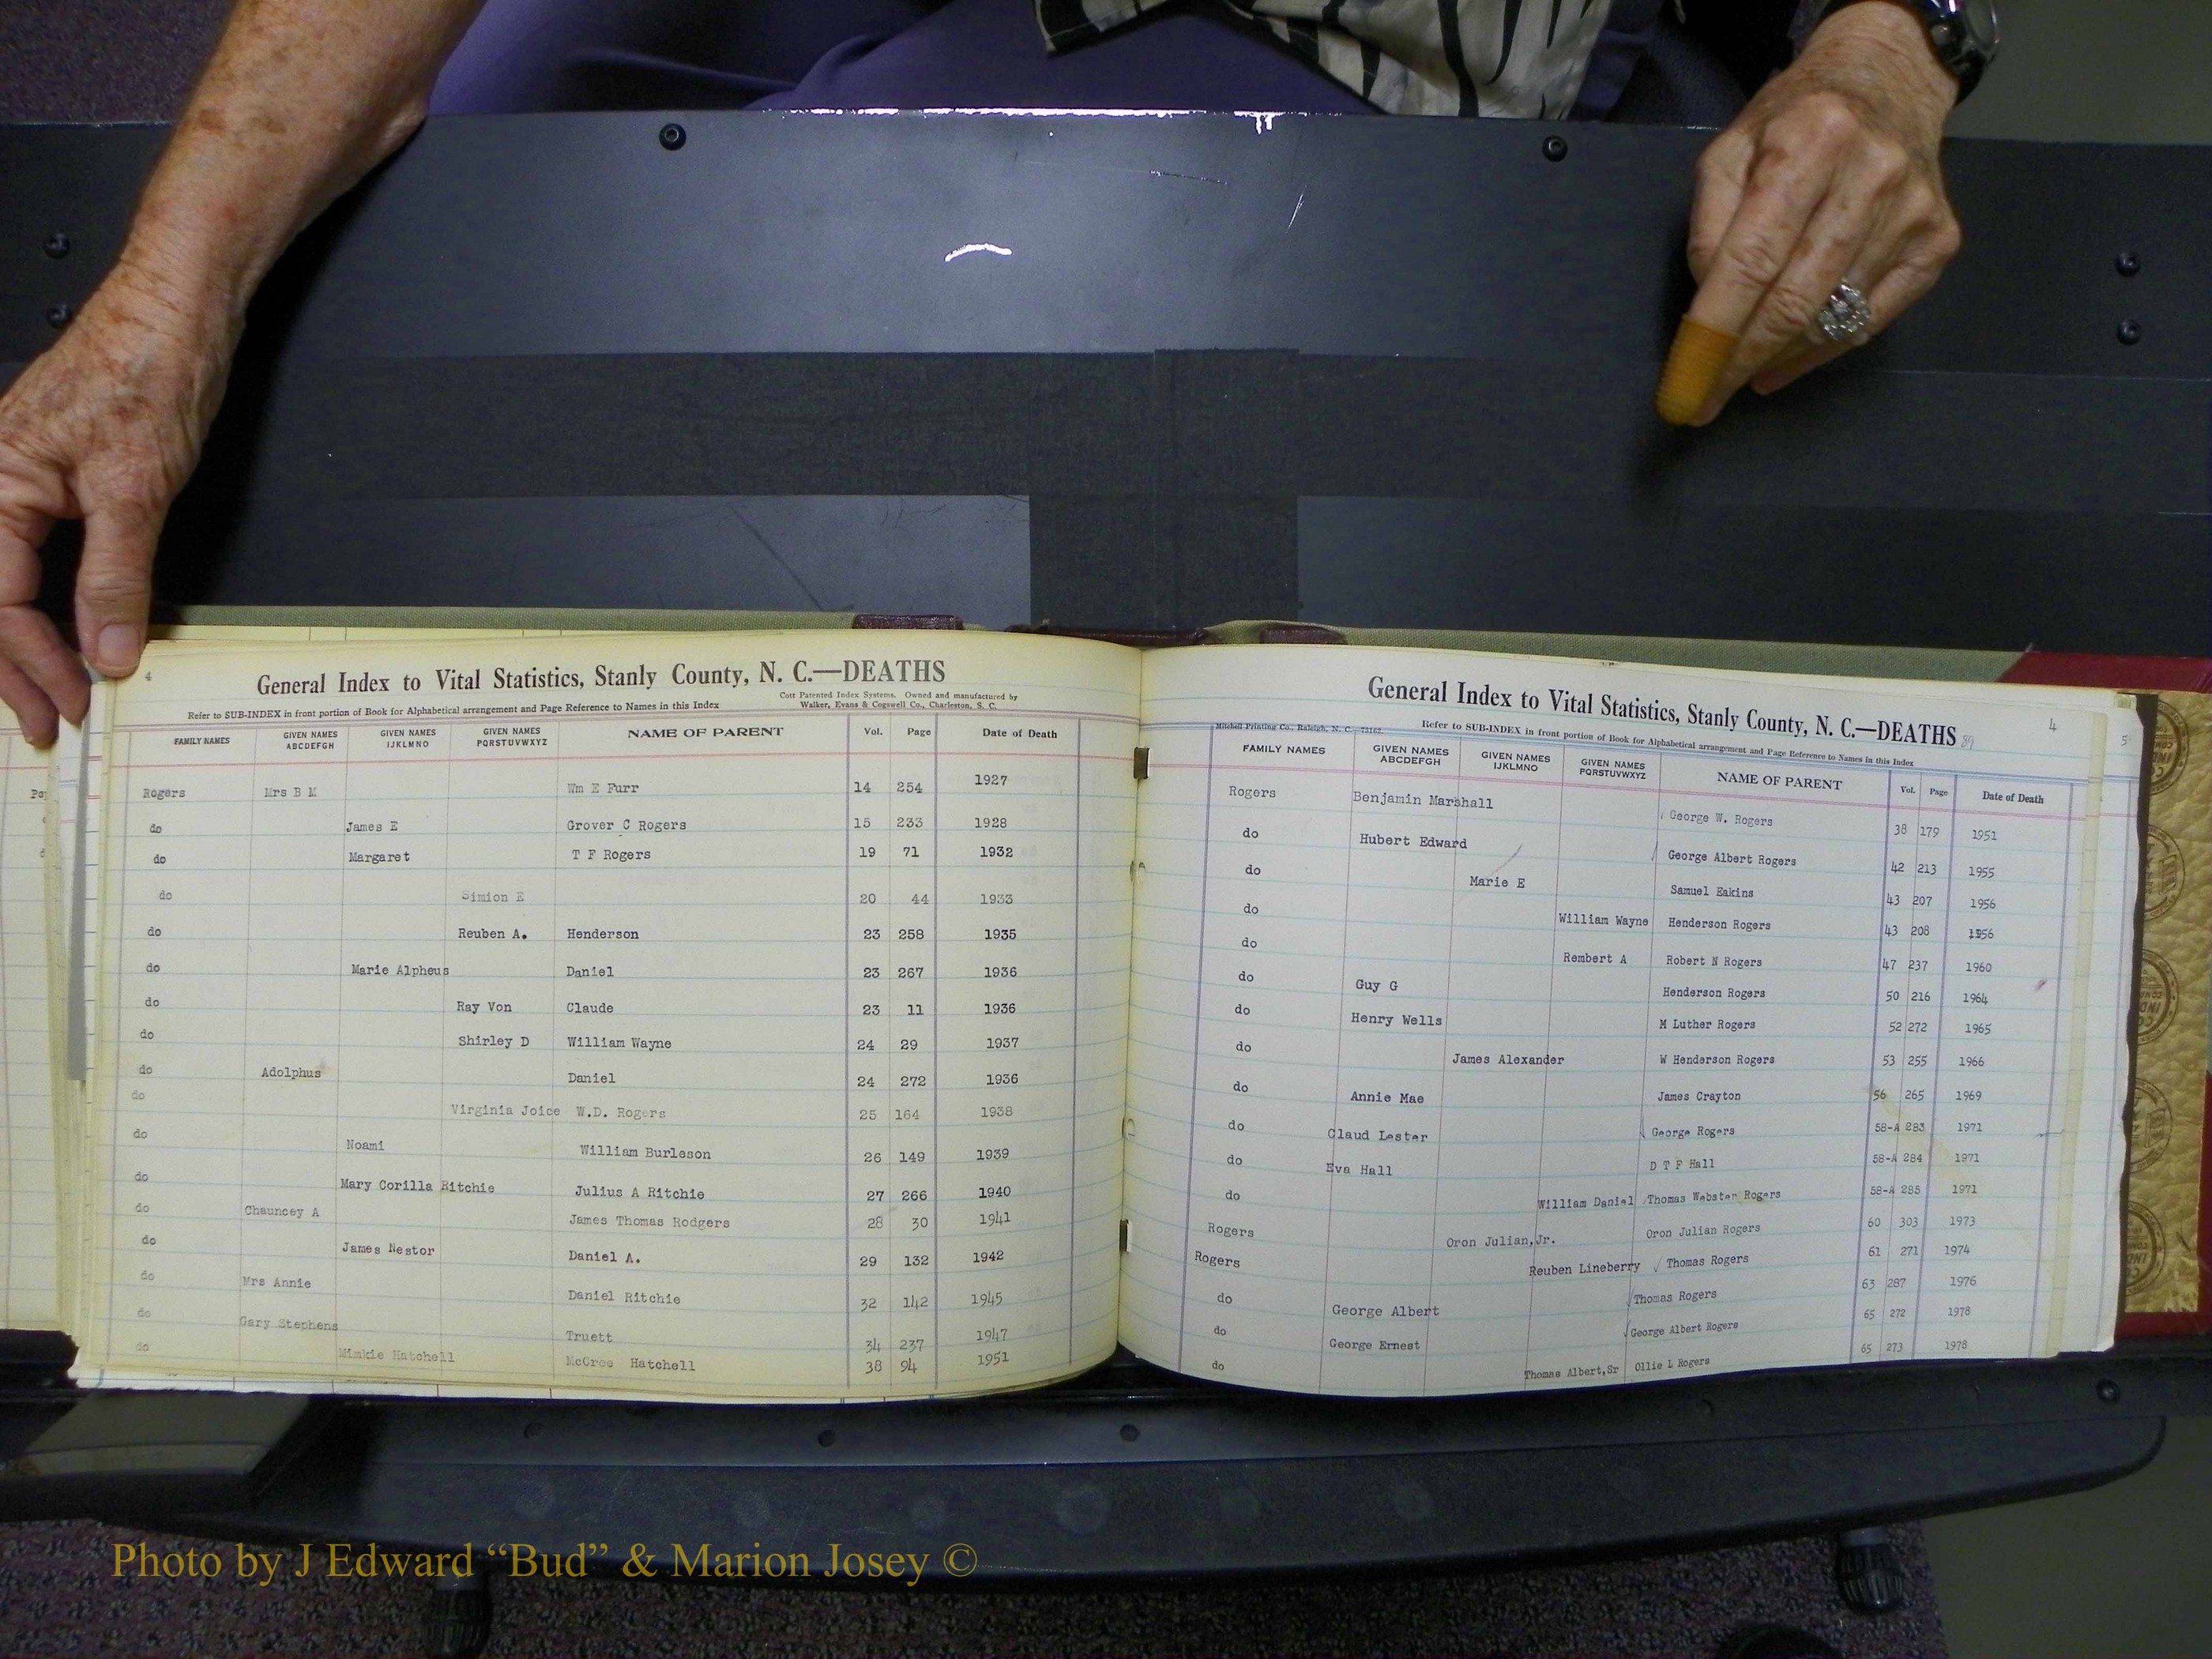 4
General Index to Vital Statistics, Stanly County, N. C.—DEATHS
Cott Patented Index Systems. Owned and manufactured by
Refer to SUB-INDEX in front portion of Book for Alphabetical arrangement and Page Reference to Names in this Index
Walker, Evans & Cogswell Co., Charleston, S. C.
FAMILY NAMES GIVEN NAMES ABCDEFGH GIVEN NAMES IJKLMNO GIVEN NAMES PQRSTUVWXYZ NAME OF PARENT Vol. Page Date of Death
Rogers Mrs B M Wm E Furr 14 254 1927
do James E Grover C Rogers 15 233 1928
do Margaret T F Rogers 19 71 1932
do Simion E 20 44 1933
do Reuben A. Henderson 23 258 1935
do Marie Alpheus Daniel 23 267 1936
do Ray Von Claude 23 11 1936
do Shirley D William Wayne 24 29 1937
do Adolphus Daniel 24 272 1936
do Virginia Joice W.D. Rogers 25 164 1938
do Noami William Burleson 26 149 1939
do Mary Corilla Ritchie Julius A Ritchie 27 266 1940
do Chauncey A James Thomas Rodgers 28 30 1941
do James Nestor Daniel A. 29 132 1942
do Mrs Annie Daniel Ritchie 32 142 1945
do Gary Stephens Truett 34 237 1947
do Mimkie Hatchell McCree Hatchell 38 94 1951
General Index to Vital Statistics, Stanly County, N. C.—DEATHS 4
Mitchell Printing Co., Raleigh, N. C. 75162
Refer to SUB-INDEX in front portion of Book for Alphabetical arrangement and Page Reference to Names in this Index
FAMILY NAMES GIVEN NAMES ABCDEFGH GIVEN NAMES IJKLMNO GIVEN NAMES PQRSTUVWXYZ NAME OF PARENT Vol. Page Date of Death
Rogers Benjamin Marshall George W. Rogers 38 179 1951
do Hubert Edward George Albert Rogers 42 213 1955
do Marie E Samuel Eakins 43 207 1956
do William Wayne Henderson Rogers 43 208 1956
do Rembert A Robert N Rogers 47 237 1960
do Guy G Henderson Rogers 50 216 1964
do Henry Wells M Luther Rogers 52 272 1965
do James Alexander W Henderson Rogers 53 255 1966
do Annie Mae James Crayton 56 265 1969
do Claud Lester George Rogers 58-A 283 1971
do Eva Hall D T F Hall 58-A 284 1971
do William Daniel Thomas Webster Rogers 58-A 285 1971
Rogers Oron Julian,Jr. Oron Julian Rogers 60 303 1973
Rogers Reuben Lineberry Thomas Rogers 61 271 1974
do George Albert Thomas Rogers 63 287 1976
do George Ernest George Albert Rogers 65 272 1978
do Thomas Albert,Sr Ollie L Rogers 65 273 1978
5
Photo by J Edward “Bud” & Marion Josey ©